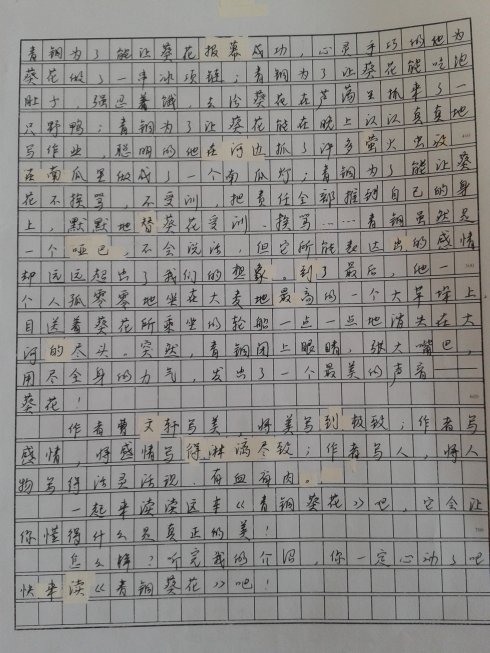 青铜为了能让葵花报幕成功，心灵手巧的他为
葵花做了一串冰项链；青铜为了让葵花能吃饱
肚子，强忍着饿，去给葵花在芦荡里抓来了一
只野鸭；青铜为了让葵花能在晚上认认真真地
写作业，聪明的他在河边抓了许多萤火虫放
在南瓜里做成了一个南瓜灯；青铜为了能让葵
花不挨骂，不受训，把责任全部推到自己的身
上，默默地替葵花受训、挨骂……青铜虽然是
一个哑巴，不会说话，但它所能表达出的感情
却远远超出了我们的想象。到了最后，他一
个人孤零零地坐在大麦地最高的一个大草垛上，
目送着葵花所乘坐的轮船一点一点地消失在大
河的尽头。突然，青铜闭上眼睛，张大嘴巴，
用尽全身的力气，发出了一个最美的声音——
葵花！
作者曹文轩写美，将美写到极致；作者写
感情，将感情写得淋漓尽致；作者写人，将人
物写得活灵活现、有血有肉。
一起来读读这本《青铜葵花》吧，它会让
你懂得什么是真正的美！
怎么样？听完我的介绍，你一定心动了吧
快来读《青铜葵花》吧！